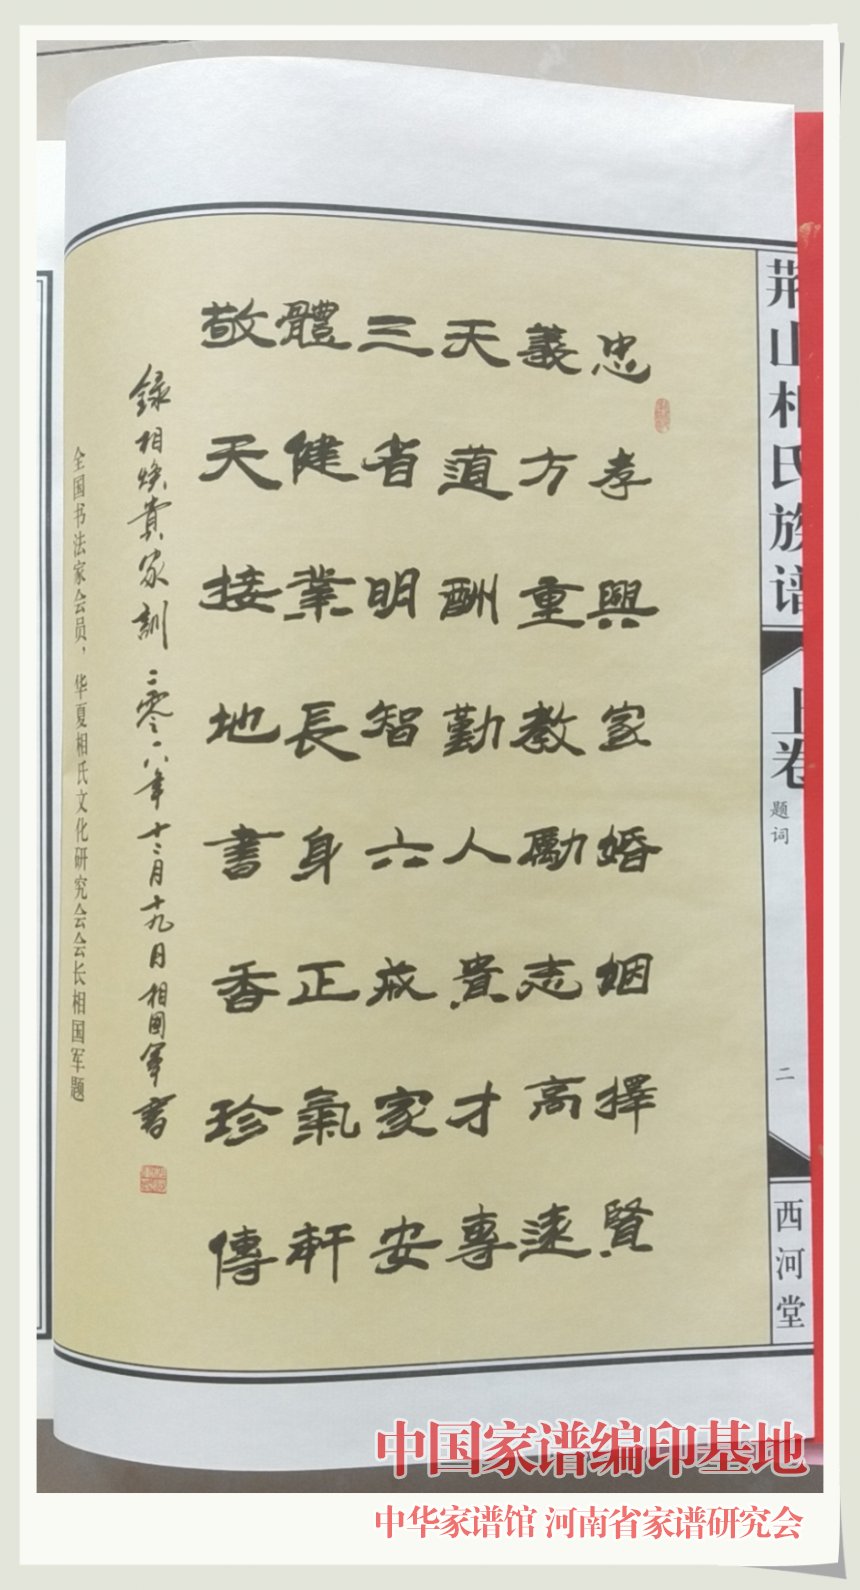 荆山相氏族谱
上卷
题词
二
西河堂
忠孝興家婚姻擇賢
義方重教勵志高遠
天道酬勤人貴才專
三省明智六戒家安
體健業長身正氣軒
敬天接地書香珍傳
録相焕貴家訓 二零一八年十二月十九日 相國军書
全国书法家会员，华夏相氏文化研究会会长相国军题
中国家谱编印基地
中华家谱馆 河南省家谱研究会